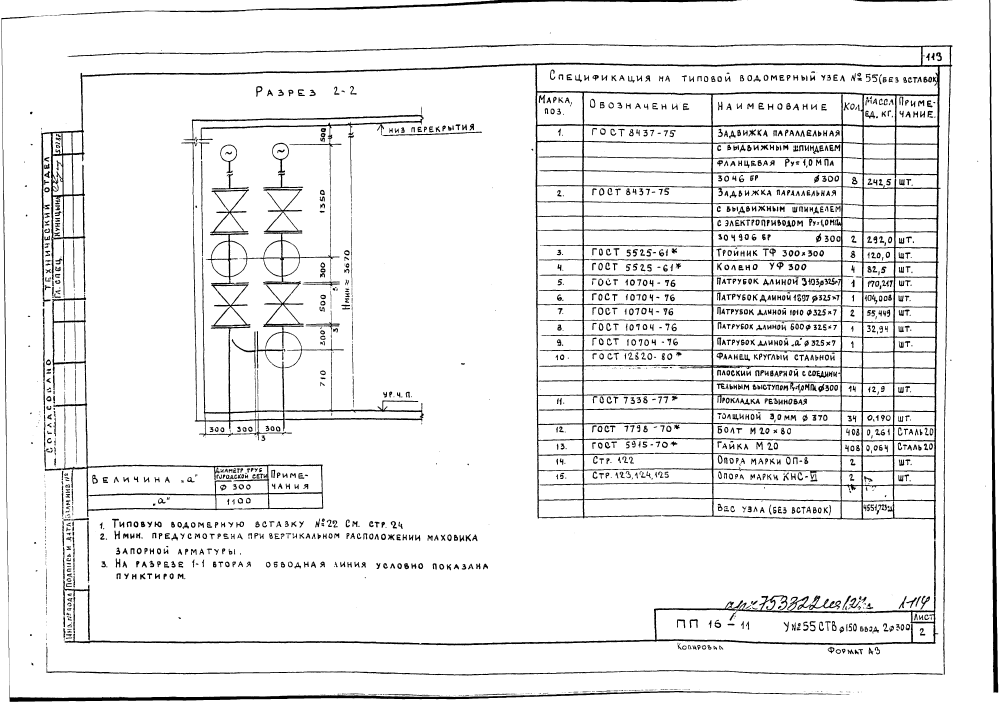 113
Разрез 2-2
низ перекрытия
500
1350
300
500
500
710
Hмин = 3670
3
ур. ч. п.
300 300 300
3
Величина „а"
Диаметр труб городской сети
Примечания
ø 300
„а"
1100
1. Типовую водомерную вставку №22 см. стр. 24
2. Hмин. предусмотрена при вертикальном расположении маховика
запорной арматуры.
3. На разрезе 1-1 вторая обводная линия условно показана
пунктиром.
Спецификация на типовой водомерный узел №55 (без вставок)
Марка, поз. Обозначение Наименование Кол. Масса ед. кг. Примечание.
1. ГОСТ 8437-75 Задвижка параллельная
с выдвижным шпинделем
фланцевая Ру=1,0 МПа
3046 бр ø300 8 242,5 шт.
2. ГОСТ 8437-75 Задвижка параллельная
с выдвижным шпинделем
с электроприводом Ру=1,0 МПа
304906 бр ø300 2 292,0 шт.
3. ГОСТ 5525-61* Тройник ТФ 300×300 8 120,0 шт.
4. ГОСТ 5525-61* Колено УФ 300 4 82,5 шт.
5. ГОСТ 10704-76 Патрубок длиной 3103 ø325×7 1 170,217 шт.
6. ГОСТ 10704-76 Патрубок длиной 1897 ø325×7 1 104,008 шт.
7. ГОСТ 10704-76 Патрубок длиной 1010 ø325×7 2 55,449 шт.
8. ГОСТ 10704-76 Патрубок длиной 600 ø325×7 1 32,94 шт.
9. ГОСТ 10704-76 Патрубок длиной „а" ø325×7 1 шт.
10. ГОСТ 12820-80* Фланец круглый стальной
плоский приварной с соедини-
тельным выступом Р=1,0 МПа ø300 14 12,9 шт.
11. ГОСТ 7338-77* Прокладка резиновая
толщиной 3,0 мм ø 370 34 0,190 шт.
12. ГОСТ 7798-70* Болт М 20×80 408 0,261 Сталь 20
13. ГОСТ 5915-70* Гайка М 20 408 0,064 Сталь 20
14. Стр. 122 Опора марки ОП-8 2 шт.
15. Стр. 123, 124, 125 Опора марки КНС-VI 2 шт.
Вес узла (без вставок)
ПП 16-11
У№55 СТВ ø150 ввод 2ø300
Лист
2
Копировал
Формат А3
Согласовано
Технический отдел
Гл. спец.
Куницына
Инв.№ подл.
Подпись и дата
Взам.инв.№